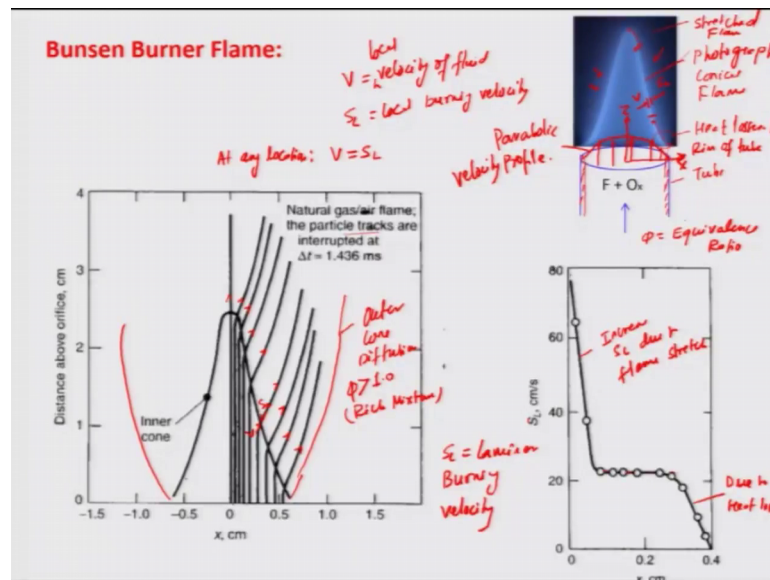 Bunsen Burner Flame:
local
V = velocity of fluid
SL = local burning velocity
At any location: V = SL
Parabolic
velocity profile.
Stretched
Flame
Photograph
Conical
Flame
Heat losses
Rim of tube
Tube
F + Ox
φ = Equivalence
Ratio
Natural gas/air flame;
the particle tracks are
interrupted at
Δt = 1.436 ms
4
3
2
1
0
Distance above orifice, cm
Inner
cone
−1.5
−1.0
−0.5
0
0.5
1.0
1.5
x, cm
Outer
Cone
Diffusion
φ > 1.0
(Rich Mixture)
SL = Laminar
Burning
velocity
80
60
40
20
0
SL, cm/s
Increase
SL due to
flame stretch
Due to
Heat
0
0.2
0.4
x, cm